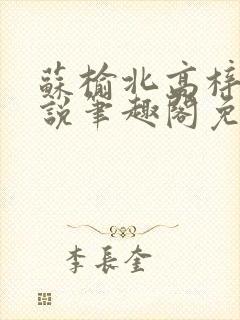 蘇榆北高梓
說筆趣閣免
李長奎